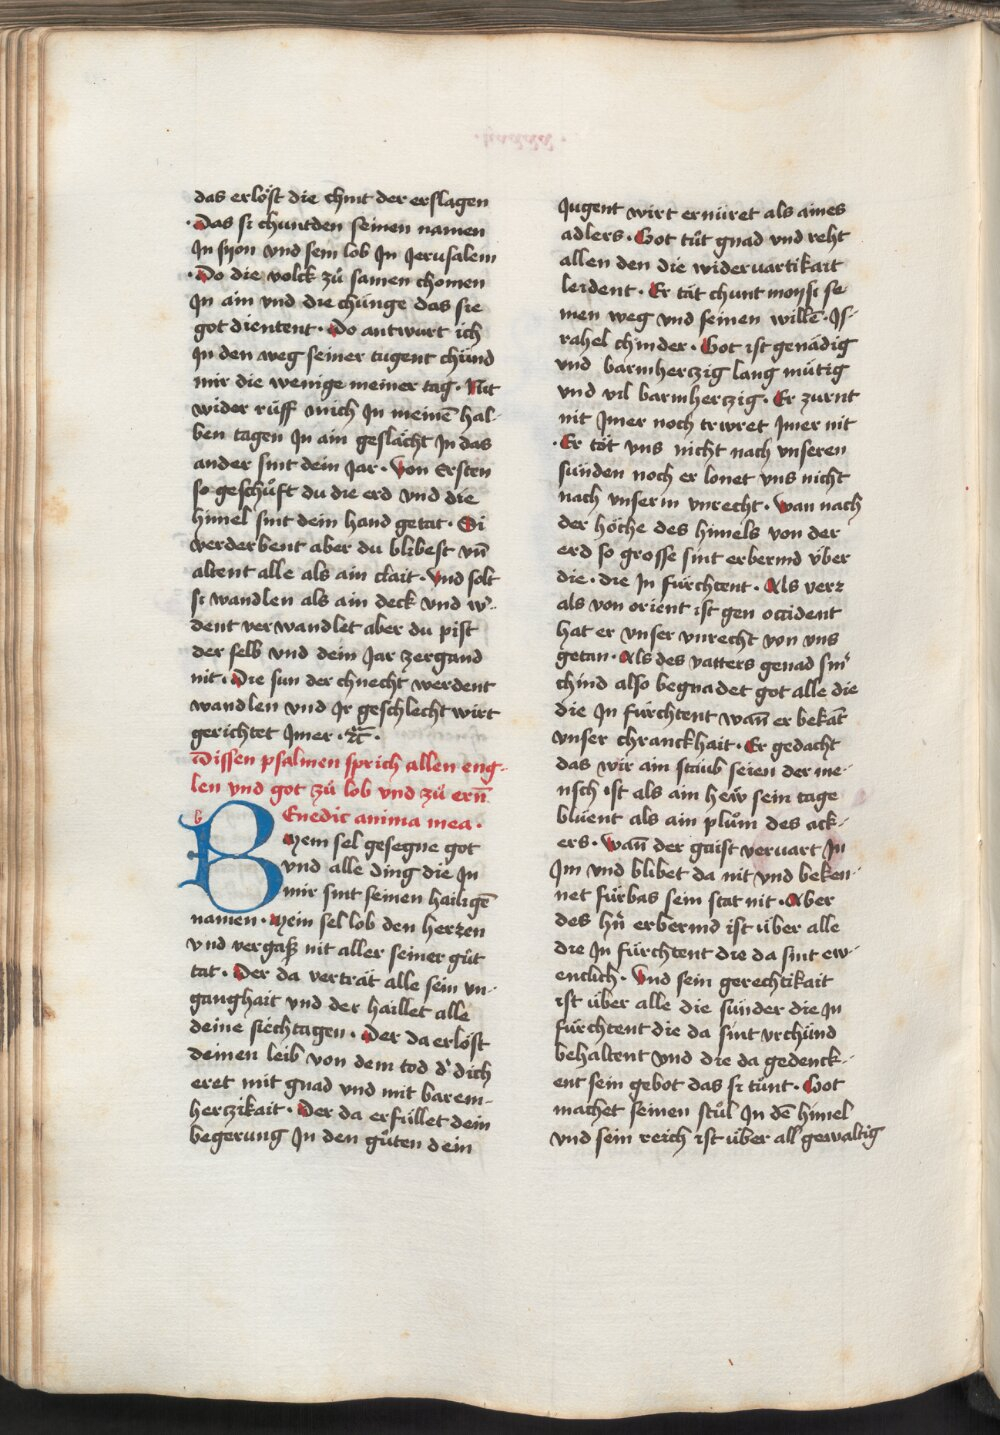 das erlöst die chint der erslagen
· Das si chuntden seinen namen
Jn syon vnd sein lob Jn Jerusalem
· Do die volck zů samen chomen
Jn ain vnd die chünge das sie
got dientent · Do antwurt ich
Jn den weg seiner tugent chünd
mir die wenige meiner tag · Nit
wider rüff mich Jn meinē hal-
ben tagen Jn ain geslächt Jn das
ander sint dein Jar · Von Ersten
so geschüft du die erd vnd die
himel sint dein hand getat · Di
verderbent aber du blibest vn̄
altent alle als ain clait · Vnd solt
si wandlen als ain deck vnd w-
dent verwandlet aber du pist
der selb vnd dein Jar zergand
nit · Die sun der chnecht werdent
wandlen vnd Jr geschlecht wirt
gerichtet Jmer · ⁊c̄ ·
Dissen psalmen sprich allen eng-
len vnd got zů lob vnd zů ern̄
b BEnedic anima mea ·
Mein sel gesegne got
vnd alle ding die Jn
mir sint seinen hailigē
namen · Mein sel lob den herzen
vnd vergaß nit aller seiner gůt
tat · Der da verträt alle sein vn-
ganghait vnd der haillet alle
deine siechtagen · Der da erlöst
deinen leib von dem tod d' dich
eret mit gnad vnd mit barem-
herczikait · Der da erfüllet dein
begerung Jn den gůten dein
Jugent wirt ernüret als aines
adlers · Got tůt gnad vnd reht
allen den die widervartikait
leident · Er tät chunt moysi se-
inen weg vnd seinen willē · Js-
rahel chinder · Got ist genädig
vnd barmherczig lang mütig
vnd vil barmherczig · Er zurnt
nit Jmer noch trwret Jmer nit
· Er töt vns nicht nach vnseren
sünden noch er lonet vns nicht
nach vnserm vnrecht · Wan nach
der höche des himels von der
erd so grosse sint erbermd über
die · die Jn fürchtent · Als verr
als von orient ist gen occident
hat er vnser vnrecht von vns
getan · Als des vatters genad sin'
chind also begnadet got alle die
die Jn fürchtent wan̄ er bekāt
vnser chranckhait · Er gedacht
das wir ain staub seien der me-
nsch ist als ain hew sein tage
blüent als ain plům des ack-
ers · Wan̄ der gaist vervart Jn
Jm vnd blibet da nit vnd beken-
net fürbas sein stat nit · Aber
des hn̄ erbermd ist über alle
die Jn fürchtent die da sint ew-
enclich · Vnd sein gerechtikait
ist über alle die sünder die Jn
fürchtent die da sint vrchünd
behaltent vnd die da gedenck-
ent sein gebot das si tünt · Got
machet seinen stůl Jn dē himel
vnd sein reich ist über all gewaltig